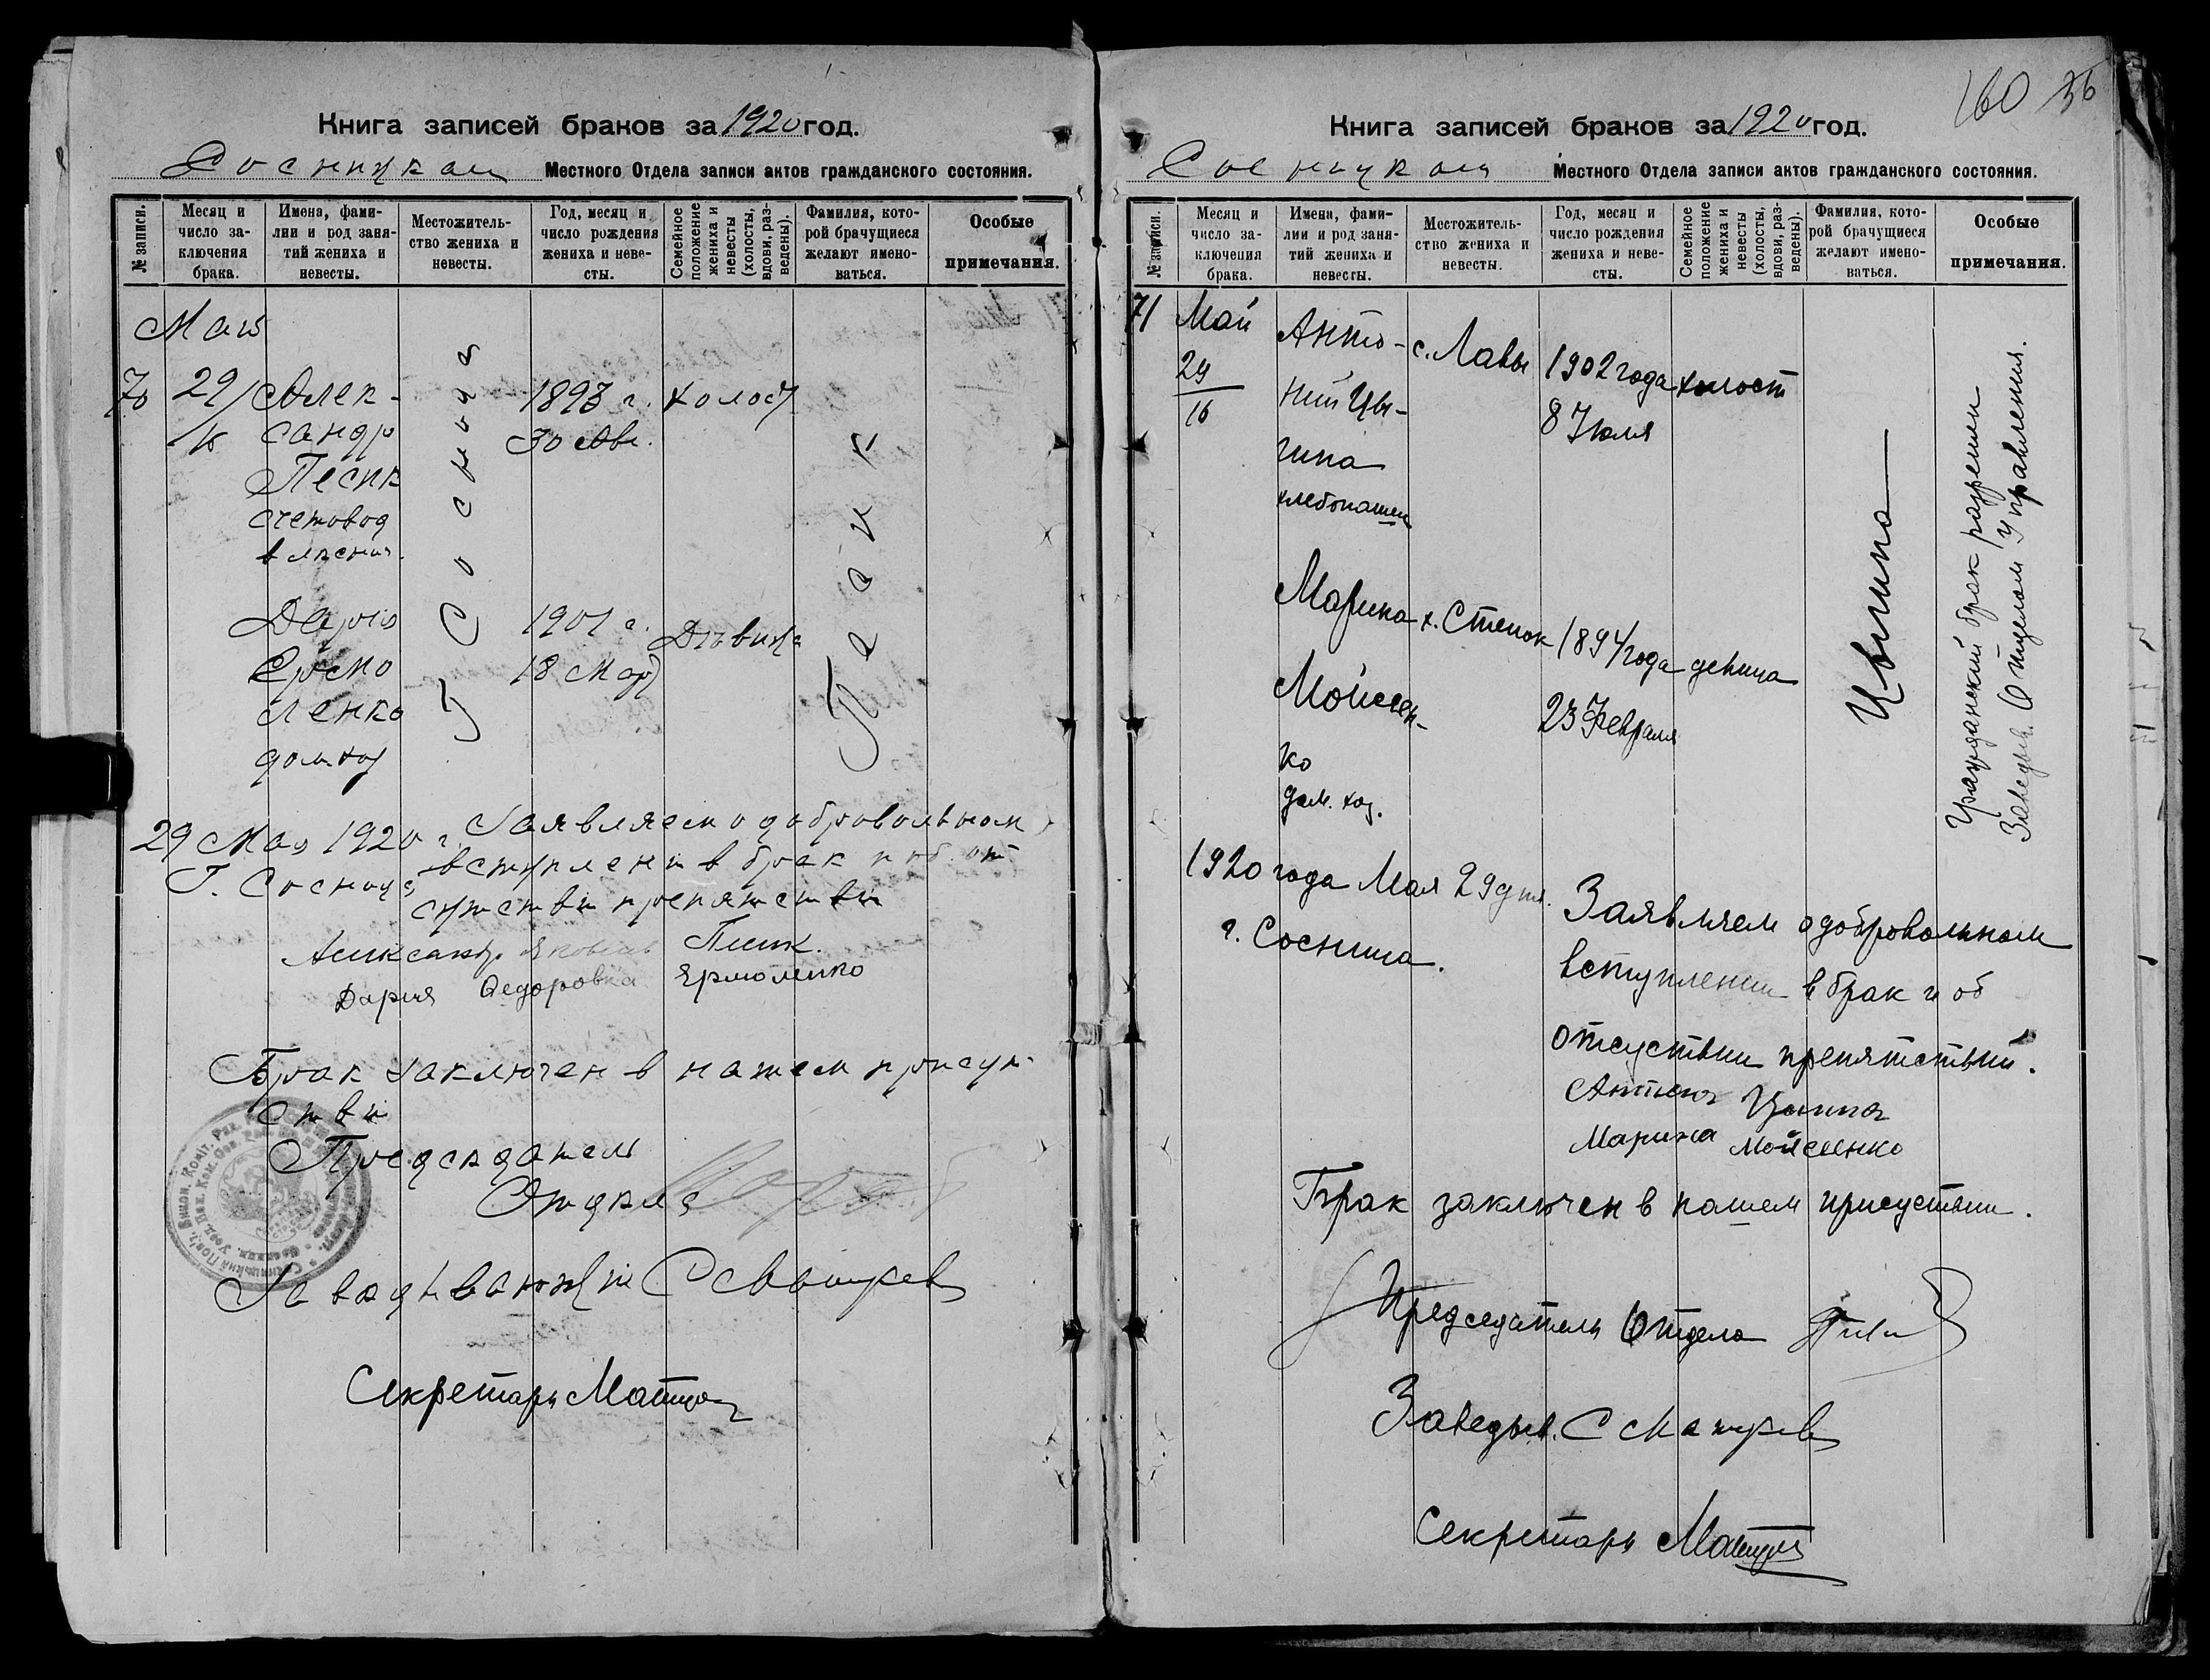 Книга записей браков за 1920 год.
Сосницкаго Местного Отдела записи актов гражданского состояния.
№ записи.
Месяц и число заключения брака.
Имена, фамилии и род занятий жениха и невесты.
Местожительство жениха и невесты.
Год, месяц и число рождения жениха и невесты.
Семейное положение жениха и невесты (холосты, вдовы, разведены).
Фамилия, которой брачущиеся желают именоваться.
Особые примечания.
Май
70
29/
16
Алек-
сандр
Песик
счетовод
Г. Сосница
1893 г.
30 Авг.
холост
Песик
Дарія
Ермо
ленко
дом. хоз
1901 г.
18 Мар
Дѣвица
29 Мая 1920 г. Заявляем о добровольном
Г. Сосница вступлении в брак и об от
сутствии препятствий
Александр Яковлев Песик.
Дария Федоровна Ермоленко
Брак заключен в нашем присут
ствии
Председатель
Отдела
Заведывающий
Секретарь
160 36
Книга записей браков за 1920 год.
Местного Отдела записи актов гражданского состояния.
№ записи.
Месяц и число заключения брака.
Имена, фамилии и род занятий жениха и невесты.
Местожительство жениха и невесты.
Год, месяц и число рождения жениха и невесты.
Семейное положение жениха и невесты (холосты, вдовы, разведены).
Фамилия, которой брачущиеся желают именоваться.
Особые примечания.
71
Май
29
16
Анто-
ний Цы-
гипа
хлебопашец
с. Лавы
1902 года
8 Июля
холост
Марина
Мойсеен-
ко
дом. хоз.
х. Степок
1894 года
23 Февраля
девица
Гражданский брак разрешен
Заведыв. Отделом Управления.
1920 года Мая 29 дня.
г. Сосница.
Заявляем о добровольном
вступлении в брак и об
отсуствии препятствий.
Марина Мойсеенко
Брак заключен в нашем присуствии.
Председатель Отдела
Заведыв.
Секретарь